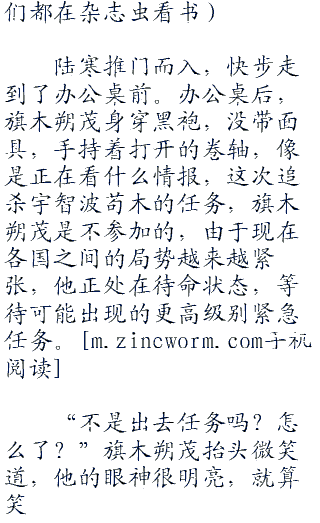 们都在杂志虫看书）
陆寒推门而入，快步走
到了办公桌前。办公桌后，
旗木朔茂身穿黑袍，没带面
具，手持着打开的卷轴，像
是正在看什么情报，这次追
杀宇智波苟木的任务，旗木
朔茂是不参加的，由于现在
各国之间的局势越来越紧
张，他正处在待命状态，等
待可能出现的更高级别紧急
任务。[m.zincworm.com手机
阅读]
“不是出去任务吗？怎
么了？”旗木朔茂抬头微笑
道，他的眼神很明亮，就算
笑